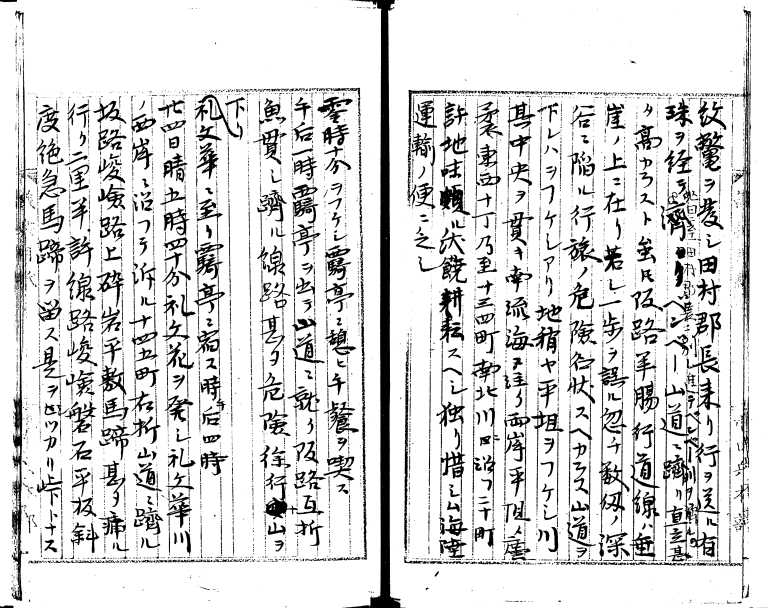 紋鼈ヲ発シ田村郡長来リ行ヲ送ル有
珠ヲ経テ ベンベー山道ニ躋リ直立甚
タ高カラスト雖トモ阪路羊腸行道線ハ垂
崖ノ上ニ在リ若シ一歩ヲ誤ル忽チ数仭ノ深
谷ニ陥ル行旅ノ危険名状スヘカラス山道ヲ
下レハヲフケシアリ地稍ヤ平坦ヲフケシ川
其中央ヲ貫キ南流海ヲ注ク両岸平坦ノ
東西十丁乃至十三四町南北川ニ沿フ二十町
許地味頗ル沃饒耕耘スヘシ独リ惜シム海陸
運輸ノ便ニ乏シ
零時十分ヲフケシ靄亭ニ憩ヒ午餐ヲ喫ス
午后一時靄亭ヲ出テ山道ニ就ク阪路互折
魚貫シ躋ル線路甚タ危険徐行山ヲ
下リ
礼文華ニ至リ靄亭ニ宿ス時午后四時
廿四日晴五時四十分礼文花ヲ発シ礼文華川
ノ西岸ニ沿フテ泝ル十四五町右折山道ニ躋ル
坂路峻嶮路上砕岩平敷馬蹄甚タ痛ル
行ク二里半許線路峻嶮磐石平板斜
度絶急馬蹄ヲ留ス是ヲ ツカリ峠トナス